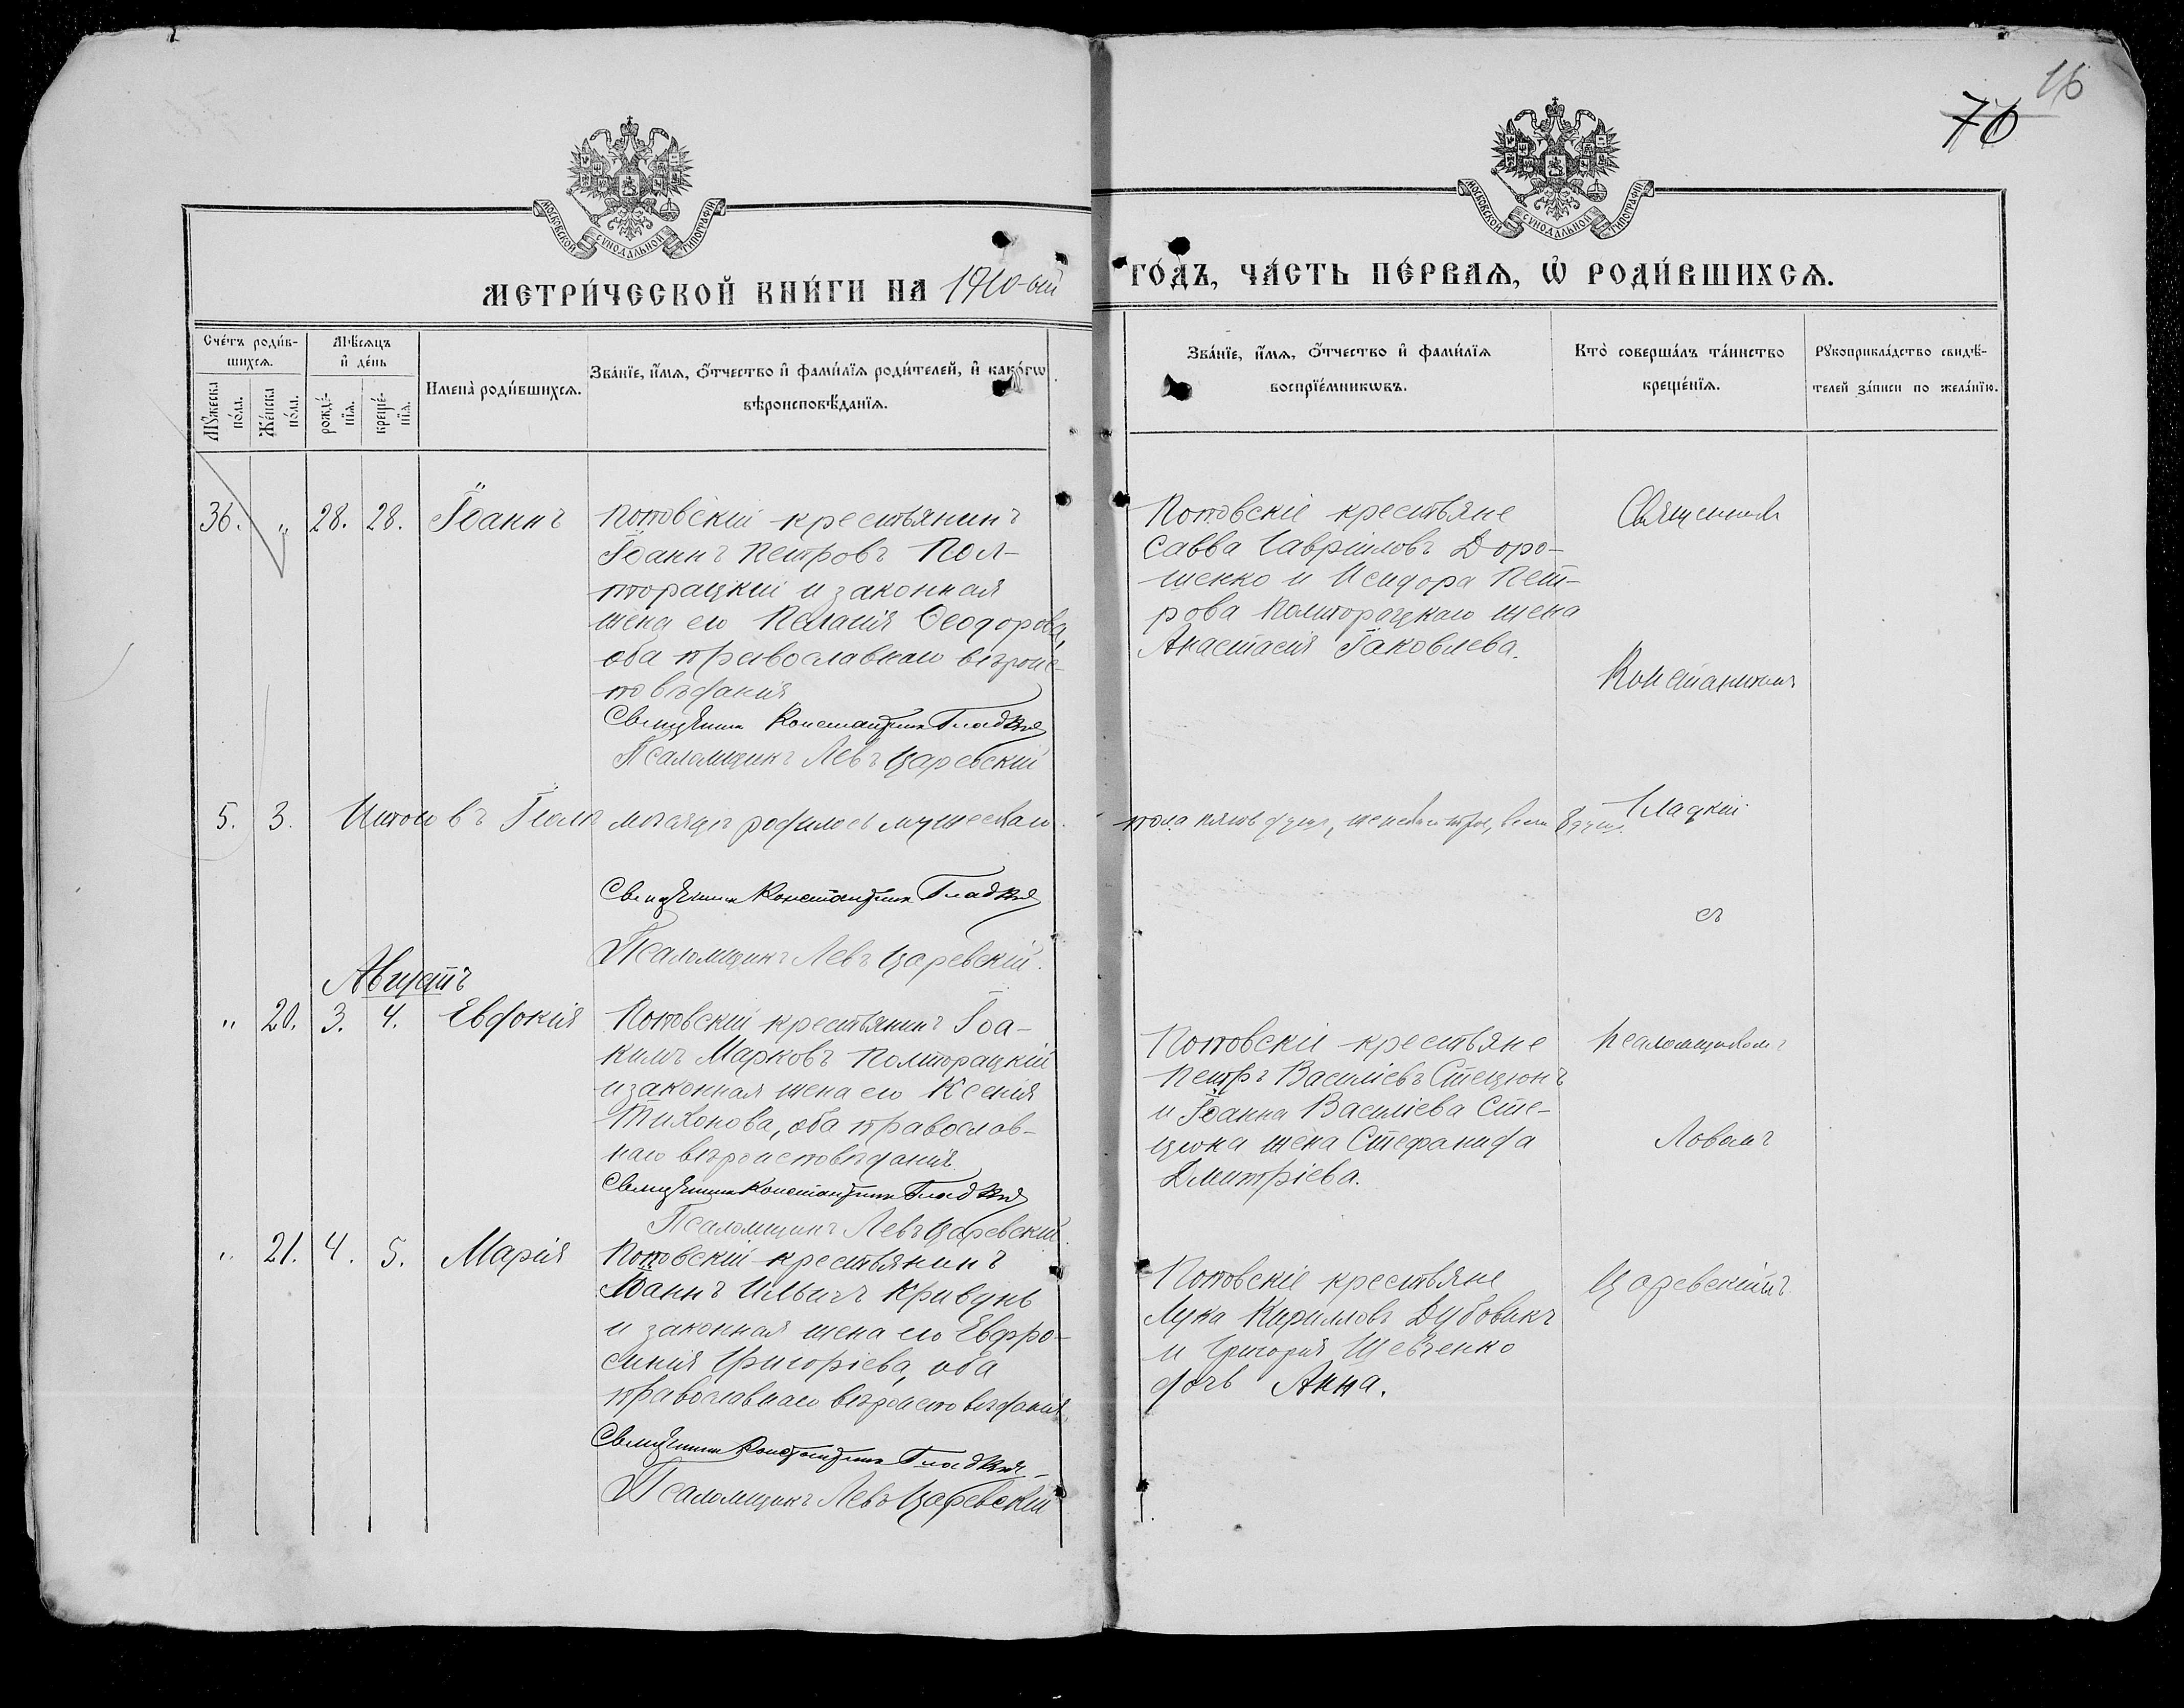 16
76
МОСКОВСКОЙ СѴНОДАЛЬНОЙ ТИПОГРАФІИ
МОСКОВСКОЙ СѴНОДАЛЬНОЙ ТИПОГРАФІИ
МЕТРИ́ЧЕСКОЙ КНИ́ГИ НА 1910-ый ГО́ДЪ, ЧА́СТЬ ПЕ́РВАѦ, Ѡ҆ РОДИ́ВШИХСѦ.
Сче́тъ роди́в-
шихсѧ.
Мꙋ́жеска
по́ла.
Же́нска
по́ла.
Мѣ́сѧцъ
и҆ де́нь
рожде́-
нїѧ.
креще́-
нїѧ.
Имена̀ роди́вшихсѧ.
Зва́нїе, и҆́мѧ, ѻ҆́тчество и҆ фамилїѧ роди́телей, и҆ како́гѡ
вѣроисповѣ́данїѧ.
Зва́нїе, и҆́мѧ, ѻ҆́тчество и҆ фами́лїѧ
воспрїе́мникѡвъ.
Кто̀ соверша́лъ та́инство
креще́нїѧ.
Рꙋкоприкла́дство свидѣ́-
телей за́писи по жела́нїю.
36. " 28. 28. Іоаннъ
Поповскій крестьянинъ
Іоаннъ Петровъ Пол-
торацкій и законная
жена его Пелагія Ѳеодорова,
оба православнаго вѣроис-
повѣданія
Священникъ Константинъ Гладкій
Псаломщикъ Левъ Царевскій
Поповскіе крестьяне
Савва Гавріиловъ Доро-
шенко и Исидора Пет-
рова Полторацкаго жена
Анастасія Іаковлева.
Священникъ
Константинъ
Гладкій
съ
псаломщикомъ
Львомъ
Царевскимъ
5. 3. Итого въ Іюлѣ мѣсяцѣ родилось мужескаго пола пять душъ, женскаго три, всего 8 душъ.
Священникъ Константинъ Гладкій
Псаломщикъ Левъ Царевскій.
Августъ
" 20. 3. 4. Евдокія
Поповскій крестьянинъ Іоа-
кимъ Марковъ Полторацкій
и законная жена его Ксенія
Тихонова, оба православ-
наго вѣроисповѣданія.
Священникъ Константинъ Гладкій
Псаломщикъ Левъ Царевскій.
Поповскіе крестьяне
Петръ Василіевъ Стецюнъ
и Іоанна Василіева Сте-
цюна жена Стефанида
Димитріева.
" 21. 4. 5. Марія
Поповскій крестьянинъ
Іоаннъ Ильичъ Кривунь
и законная жена его Евфро-
синія Григоріева, оба
православнаго вѣроисповѣданія.
Священникъ Константинъ Гладкій
Псаломщикъ Левъ Царевскій
Поповскіе крестьяне
Лука Кирилловъ Дубовикъ
и Григорія Шевченко
дочь Анна.